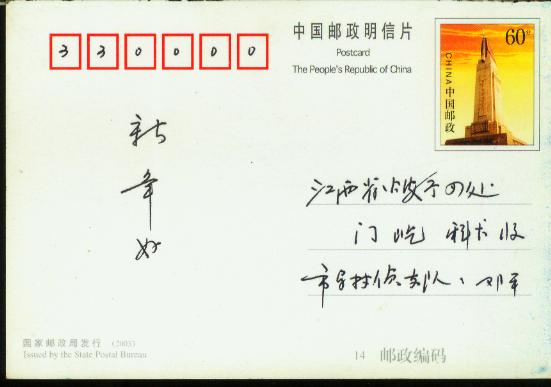 330000
中国邮政明信片
Postcard
The People's Republic of China
60分
CHINA 中国邮政
新
年
好
江西省
收
市
支队
国家邮政局发行 (2003)
Issued by the State Postal Bureau
14 邮政编码